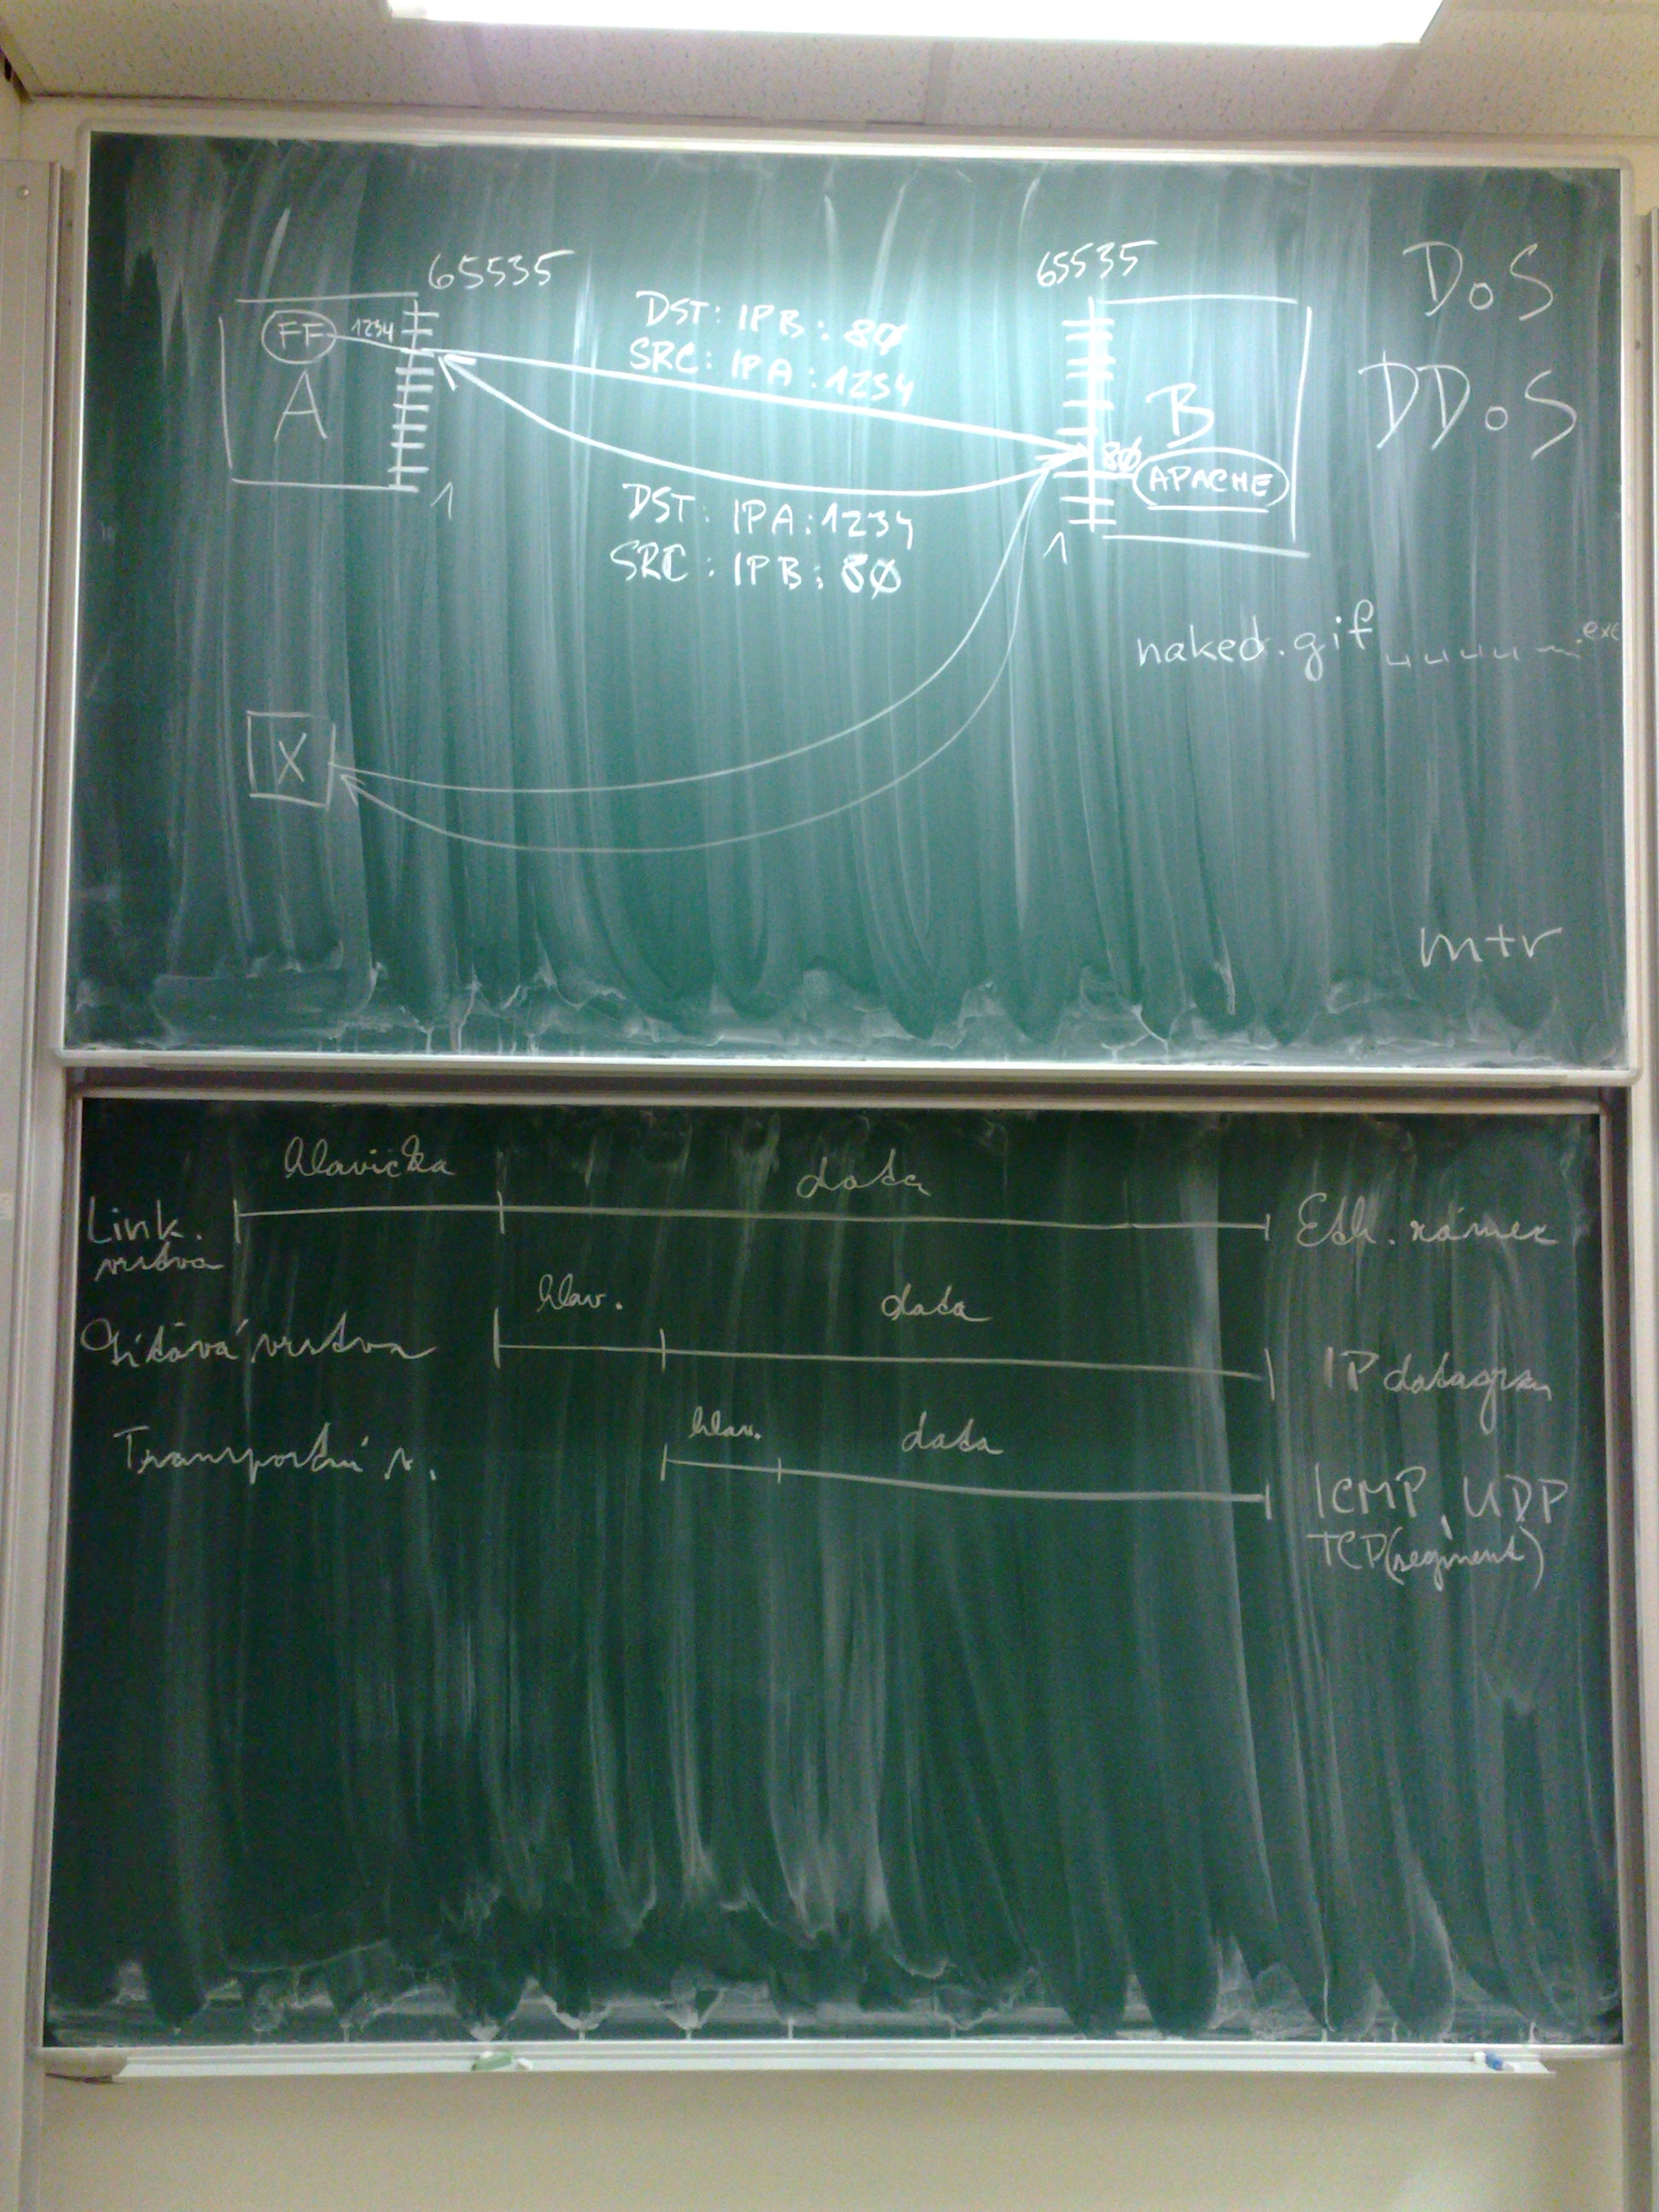 65535
65535
DoS
FF 1234
DST: IPB: 80
SRC: IPA: 1234
DDoS
A
B
80
APACHE
1
DST: IPA: 1234
SRC: IPB: 80
1
naked.gif .exe
X
mtr
hlavička data
Link. vrstva
Eth. rámec
hlav. data
Síťová vrstva
IP datagram
hlav. data
Transportní v.
ICMP, UDP
TCP (segment)